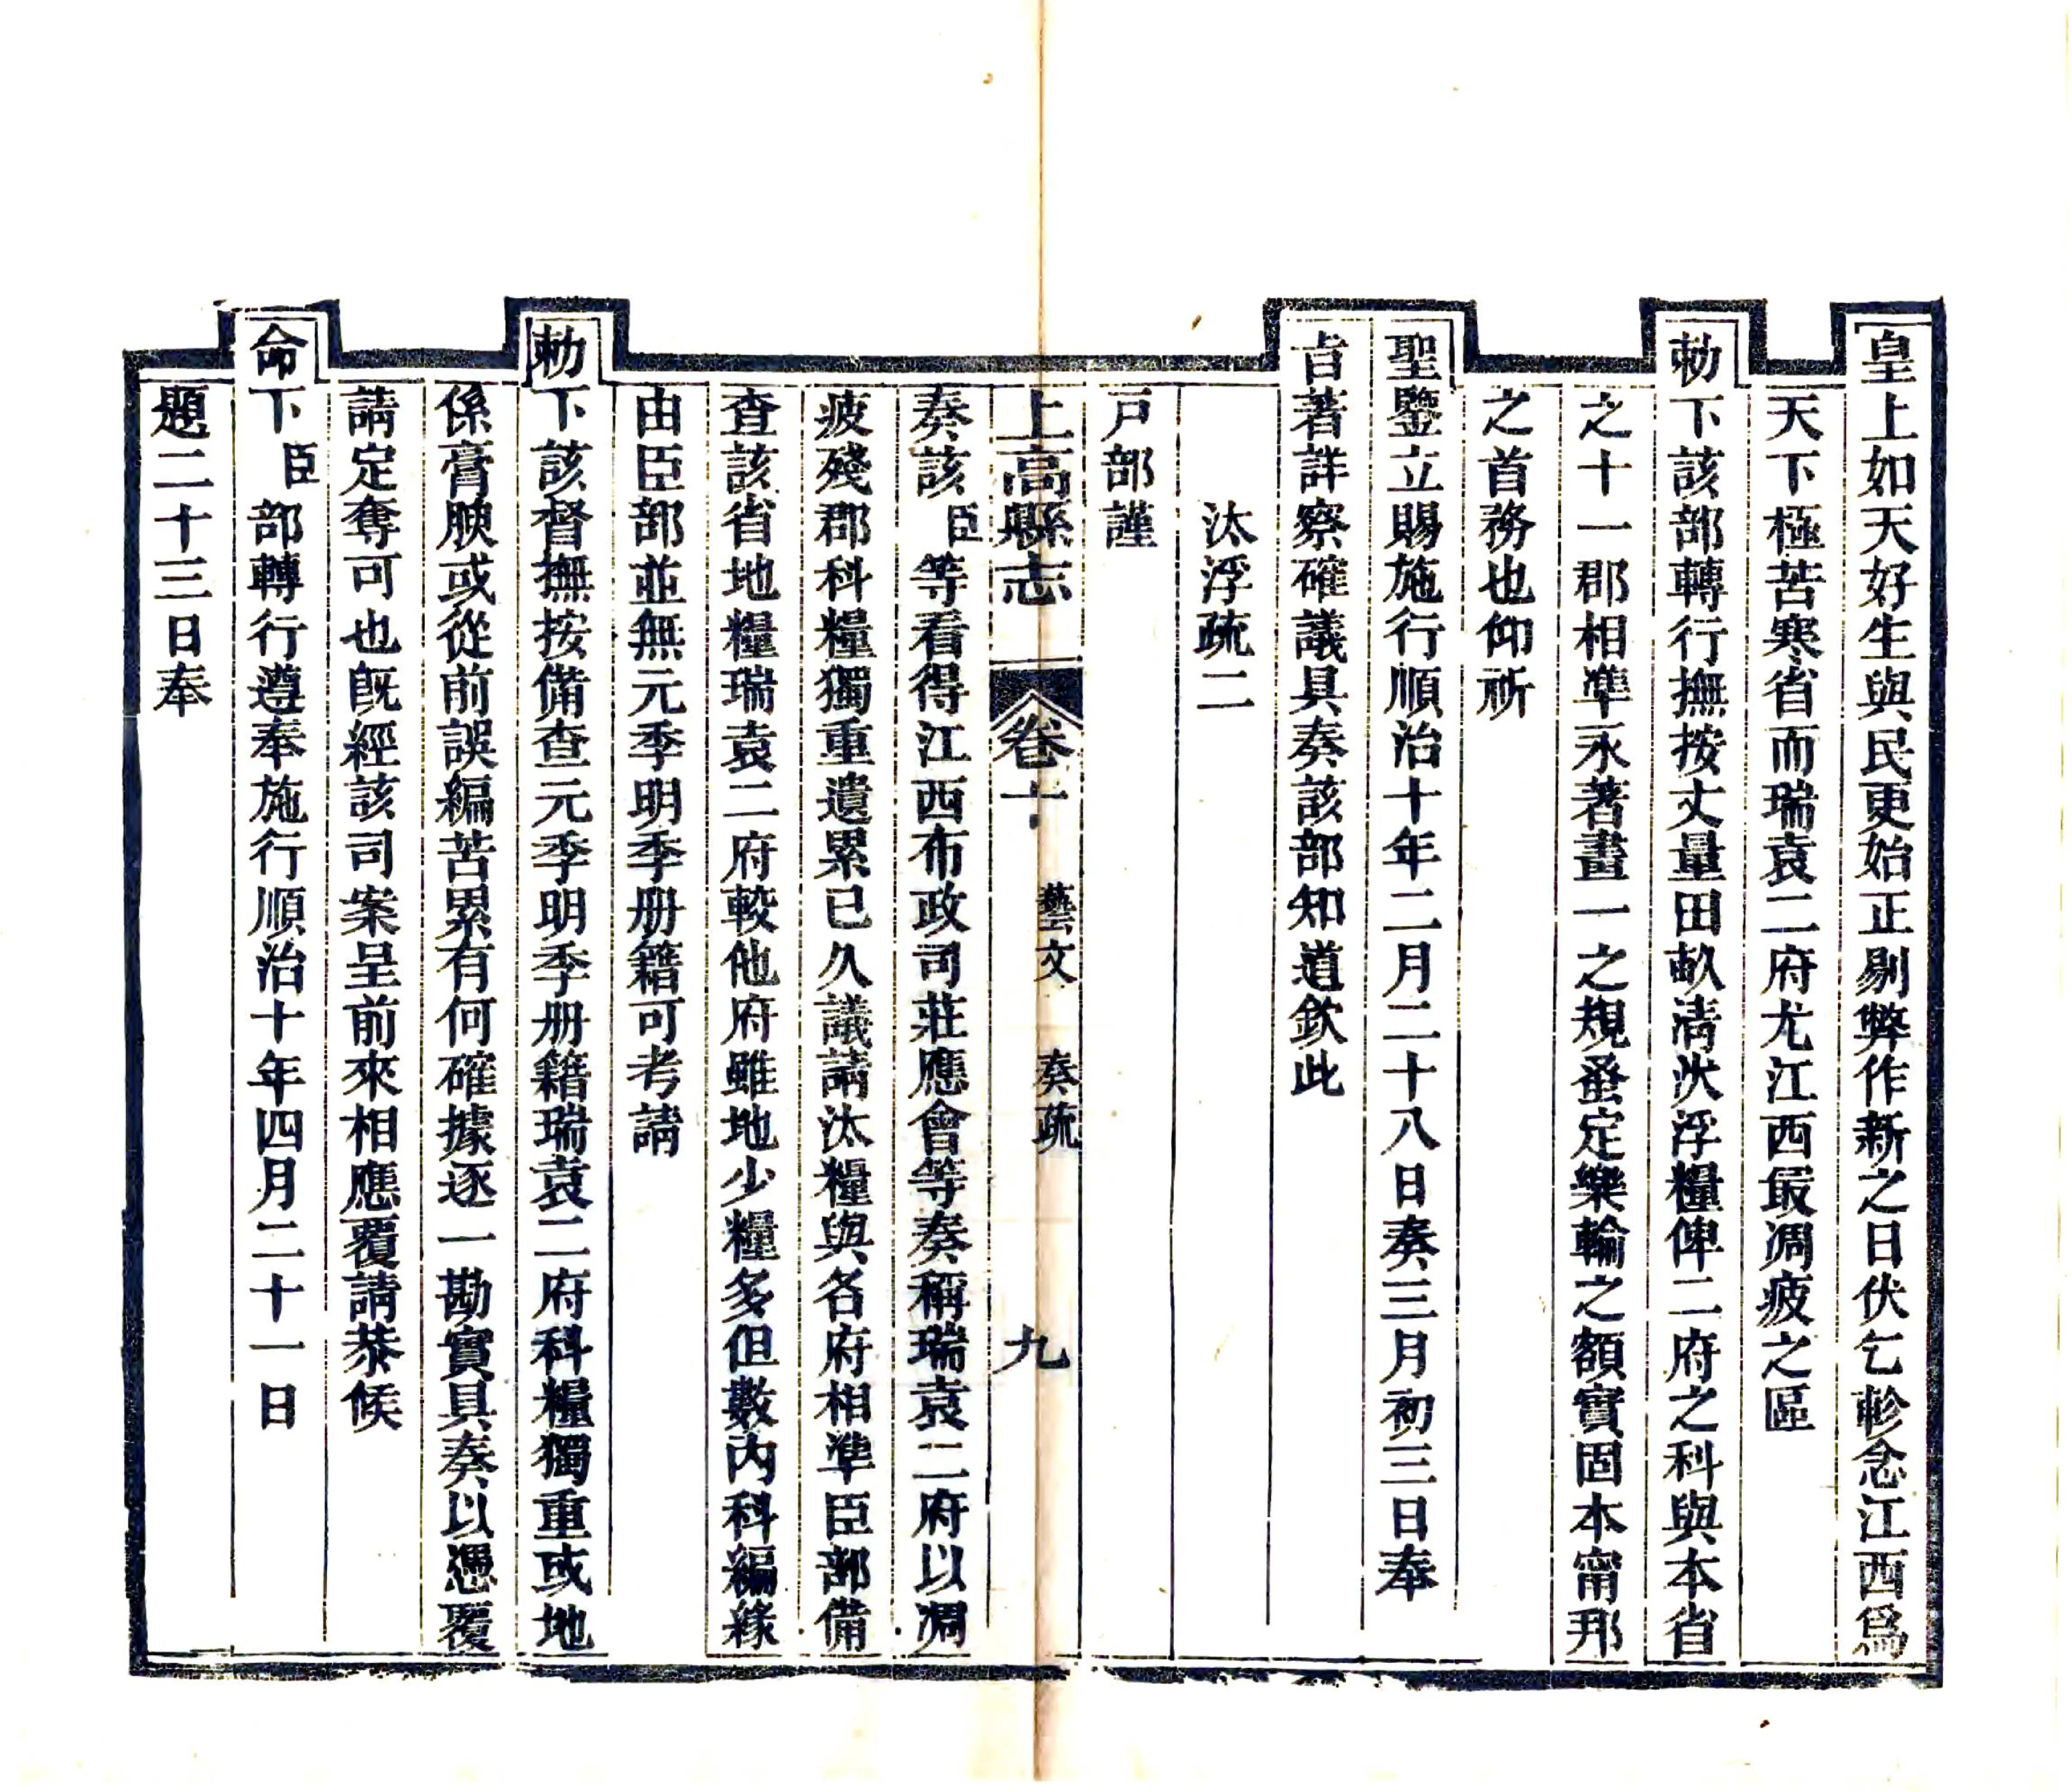 皇上如天好生與民更始正剔弊作新之日伏乞軫念江西爲
天下極苦寒省而瑞袁二府尤江西最凋疲之區
勅下該部轉行撫按丈量田畝清汰浮糧俾二府之科與本省
之十一郡相準永著畫一之規蚤定樂輸之額實固本甯邦
之首務也仰祈
聖鑒立賜施行順治十年二月二十八日奏三月初三日奉
旨著詳察確議具奏該部知道欽此
汰浮疏二
戸部謹
上高縣志
卷十
藝文 奏疏
九
奏該臣等看得江西布政司莊應會等奏稱瑞袁二府以凋
疲殘郡科糧獨重遺累已久議請汰糧與各府相準臣部備
查該省地糧瑞袁二府較他府雖地少糧多但數內科編緣
由臣部並無元季明季册籍可考請
勅下該督撫按備查元季明季册籍瑞袁二府科糧獨重或地
係膏腴或從前誤編苦累有何確據逐一勘實具奏以憑覆
請定奪可也旣經該司案呈前來相應覆請恭候
命下臣部轉行遵奉施行順治十年四月二十一日
題二十三日奉